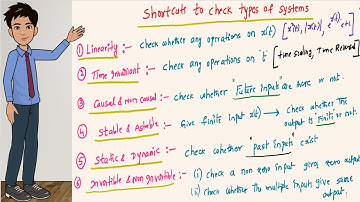 Shortcuts to check types of systems
① Linearity :- check whether any operations on x(t) [x²(t), |x(t)|, e^x(t) etc]
② Time Invariant :- check any operations on 't' [Time scaling, Time Reversal]
③ Causal & non causal :- check whether "Future inputs" are there or not.
④ Stable & Astable :- Give finite input x(t) → check whether the
output is finite or not.
⑤ Static & Dynamic :- check whether "past inputs" exist
⑥ Invertible & Non Invertible :- (i) check a non zero input gives zero output
(ii) check whether the multiple inputs give same
output.